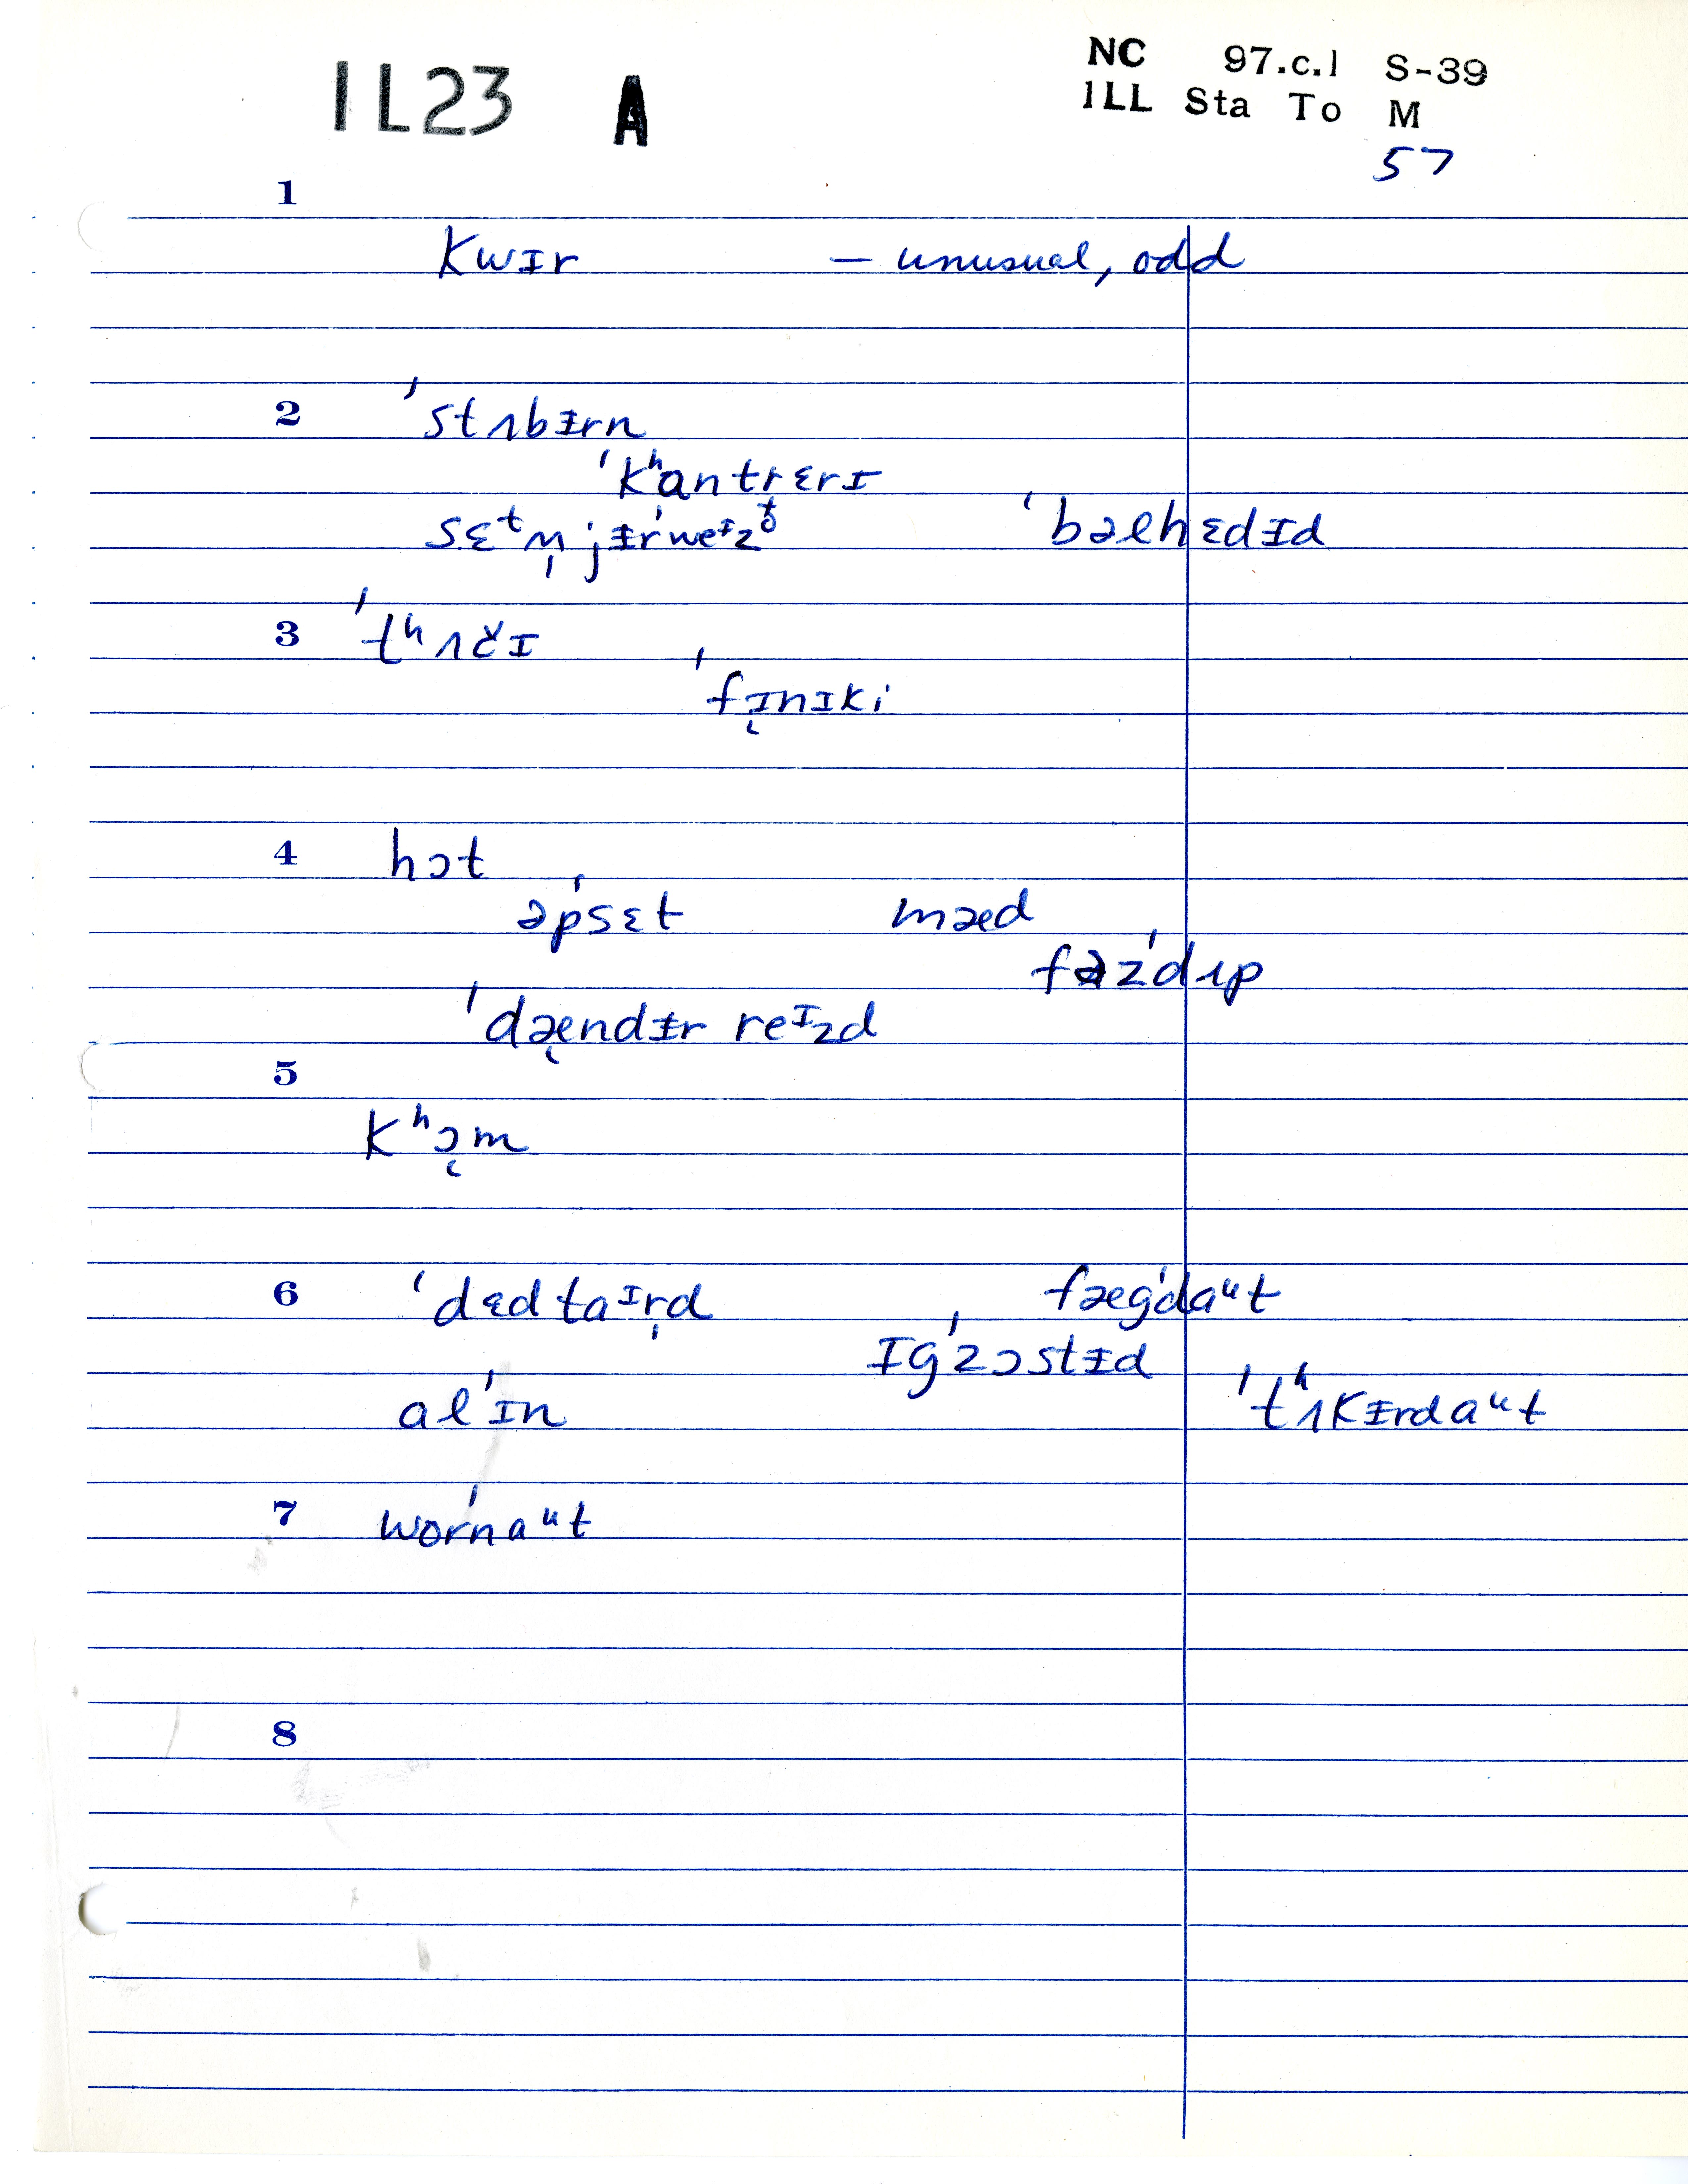 1L23 A NC 97.c.1 S-39
ILL Sta To M
57
1
kwɪr – unusual, odd
2 'stʌbɨrn
'kʰantr̩ɛrɪ
sɛᵗn̩ jɨr'weᶤzᵟ̵ 'bəlhɛdɪd
3 'tʰʌčɪ
'fɪ̨nɪki
4 hɔt
ə'psɛt mæd
fəz'dʌp
'dæ̨ndɨr reᶦzd
5
kʰɔ̨m
6 'dɛdtaᶦr̩d fæg'daᵘt
ɪg'zɔstɨd
al'ɪn 'tʰʌkɨrdaᵘt
7 wor'naᵘt
8